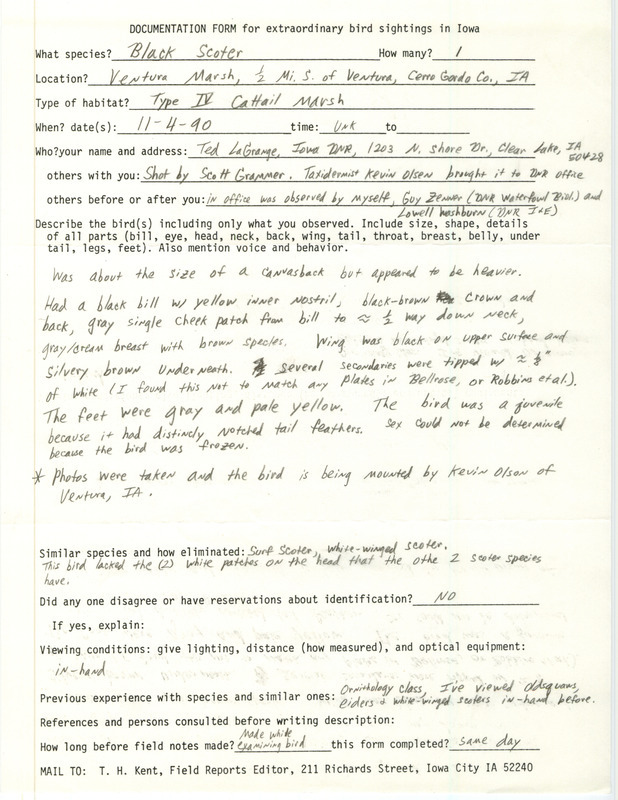 DOCUMENTATION FORM for extraordinary bird sightings in Iowa
What species? Black Scoter How many? 1
Location? Ventura Marsh, ½ Mi. S. of Ventura, Cerro Gordo Co., IA
Type of habitat? Type IV Cattail Marsh
When? date(s): 11-4-90 time: UNK to
Who? your name and address: Ted LaGrange, Iowa DNR, 1203 N. Shore Dr., Clear Lake, IA 50428
others with you: Shot by Scott Grammer. Taxidermist Kevin Olsen brought it to DNR office
others before or after you: in office was observed by myself, Guy Zenner (DNR Waterfowl Biol.) and
Lowell Washburn (DNR I&E)
Describe the bird(s) including only what you observed. Include size, shape, details
of all parts (bill, eye, head, neck, back, wing, tail, throat, breast, belly, under
tail, legs, feet). Also mention voice and behavior.
Was about the size of a canvasback but appeared to be heavier.
Had a black bill w/ yellow inner nostril, black-brown crown and
back, gray single cheek patch from bill to ≈ ½ way down neck,
gray/cream breast with brown species. Wing was black on upper surface and
silvery brown underneath. several secondaries were tipped w/ ≈ ⅛"
of white (I found this not to match any plates in Bellrose, or Robbins et al.).
The feet were gray and pale yellow. The bird was a juvenile
because it had distincly notched tail feathers. Sex could not be determined
because the bird was frozen.
* Photos were taken and the bird is being mounted by Kevin Olson of
Ventura, IA.
Similar species and how eliminated: Surf Scoter, white-winged scoter.
This bird lacked the (2) white patches on the head that the othe 2 scoter species
have.
Did any one disagree or have reservations about identification? NO
If yes, explain:
Viewing conditions: give lighting, distance (how measured), and optical equipment:
in-hand
Previous experience with species and similar ones: Ornithology class, I've viewed oldsquaws,
eiders + white-winged scoters in-hand before.
References and persons consulted before writing description:
How long before field notes made? Made while examining bird this form completed? same day
MAIL TO: T. H. Kent, Field Reports Editor, 211 Richards Street, Iowa City IA 52240